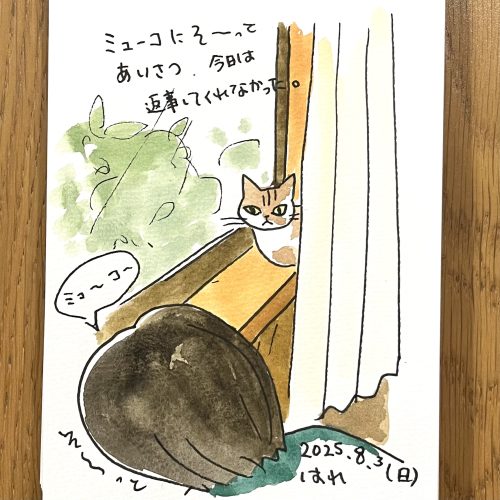 ミューコにそ〜って
あいさつ.今日は
返事してくれなかった。
ミュ〜コ〜
そ〜〜っと
2025.8.3(日)
はれ